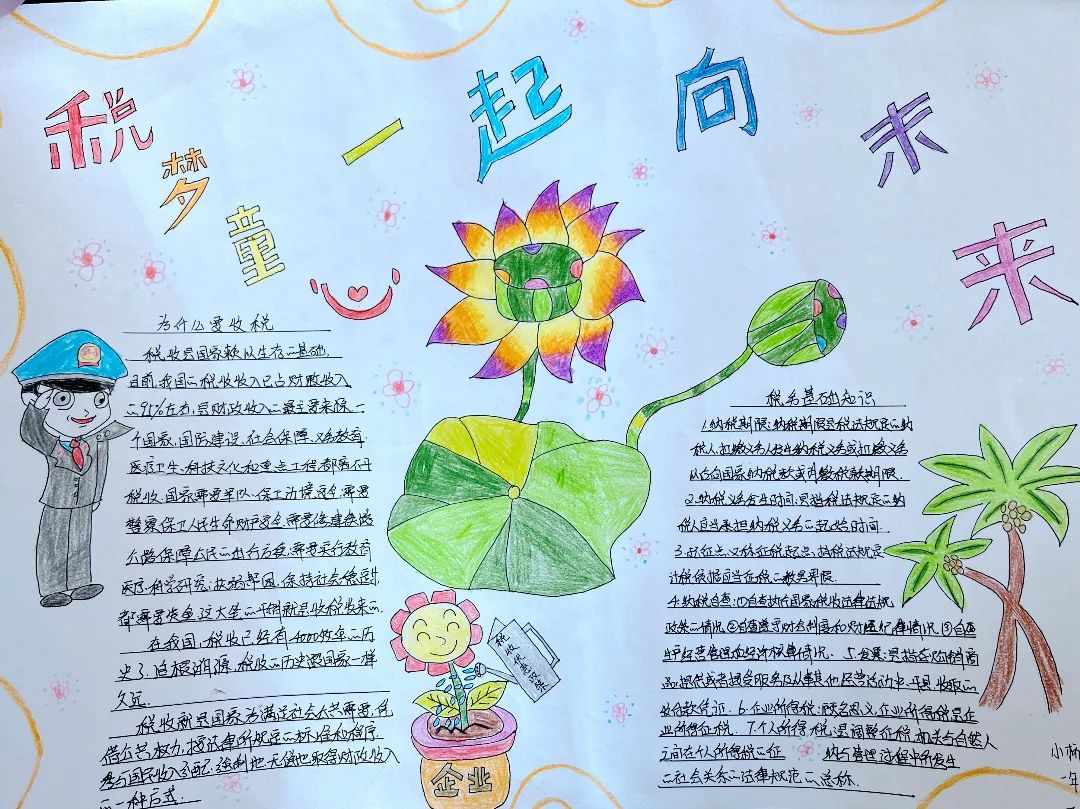 税梦童心
一起向未来
为什么要收税
税收是国家赖以生存的基础.
目前,我国的税收收入已占财政收入
的95%左右,是财政收入的最主要来源.一
个国家,国防建设、社会保障、义务教育
医疗卫生、科技文化和重点工程,都离不开
税收.国家需要军队,保卫边境安全,需要
警察,保卫人民生命财产安全,需要修建铁路
公路保障人民的出行方便,需要实行教育
医疗,科学研究,扶弱帮困,保持社会稳定,
都需要资金,这大笔的开销就是收税收来的.
在我国,税收已经有4000多年的历
史了,追根溯源,税收的历史跟国家一样
久远.
税收就是国家为满足社会公共需要,凭
借公共权力,按法律所规定的标准和程序
参与国民收入分配,强制地无偿地取得财政收入
的一种方式.
税务基础知识
1.纳税期限:纳税期限是税法规定的纳
税人、扣缴义务人发生纳税义务或扣缴义务
以后向国家纳税款或
2.纳税义务发生时间,是指税法规定的纳
税人应当承担纳税义务的起始时间.
3.起征点,又称征税起点,指税法规定
计税依据应当征税的数量界限.
4.纳税自查:①自查执行国家税收法律法规
政策的情况②自查遵守财会制度和财经纪律情况③自查
生产经营管理和经济核算情况. 5.发票:是指在购销商
品,提供或者接受服务以及从事其他经营活动中,开具、收取的
收付款凭证. 6.企业所得税:顾名思义,企业所得税是企
业所得征税. 7.个人所得税:是调整征税机关与自然人
之间在个人所得税的征 纳与管理过程中所发生
的社会关系的法律规范的总称.
税收优惠政策
企业